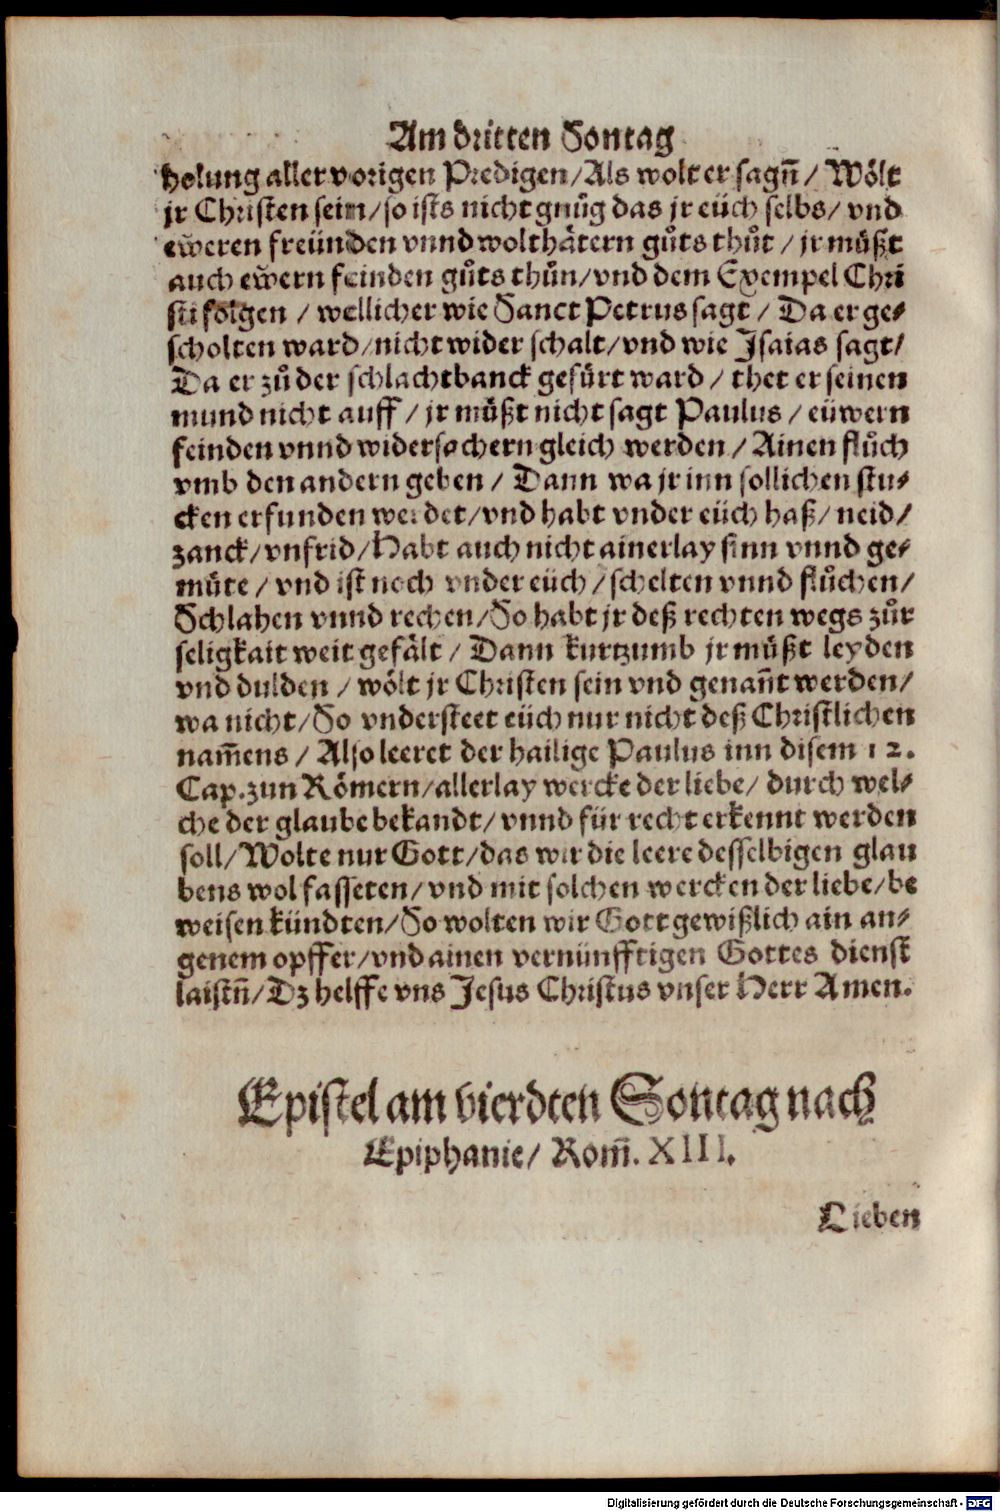 Am dritten Sontag
holung aller vorigen Predigen/Als wolt er sagñ/ Wölt
jr Christen sein/so ists nicht gnůg das jr eüch selbs/ vnd
ew̃eren freünden vnnd wolthätern gůts thůt / jr müßt
auch ew̃ern feinden gůts thůn/vnd dem Exempel Chri
sti folgen / wellicher wie Sanct Petrus sagt / Da er ge⸗
scholten ward/nicht wider schalt/vnd wie Isaias sagt/
Da er zů der schlachtbanck gefürt ward / thet er seinen
mund nicht auff / jr müßt nicht sagt Paulus / eüwern
feinden vnnd widersachern gleich werden / Ainen flůch
vmb den andern geben / Dann wa jr inn sollichen stu⸗
cken erfunden werdet/vnd habt vnder eüch haß/ neid/
zanck/vnfrid/Habt auch nicht ainerlay sinn vnnd ge⸗
müte / vnd ist noch vnder eüch /schelten vnnd flůchen/
Schlahen vnnd rechen/So habt jr deß rechten wegs zůr
seligkait weit gefält / Dann kurtzumb jr müßt leyden
vnd dulden / wölt jr Christen sein vnd genañt werden/
wa nicht/So vndersteet eüch nur nicht deß Christlichen
nam̃ens / Also leeret der hailige Paulus inn disem 12.
Cap.zun Römern/allerlay wercke der liebe/ durch wel⸗
che der glaube bekandt/vnnd für recht erkennt werden
soll/Wolte nur Gott/das wir die leere desselbigen glau
bens wol fasseten/vnd mit solchen wercken der liebe/be
weisen kündten/So wolten wir Gott gewißlich ain an⸗
genem opffer/vnd ainen vernünfftigen Gottes dienst
laistñ/Dz helffe vns Jesus Christus vnser Herr Amen.
Epistel am vierdten Sontag nach
Epiphanie/ Rom̃. XIII.
Lieben
Digitalisierung gefördert durch die Deutsche Forschungsgemeinschaft - DFG